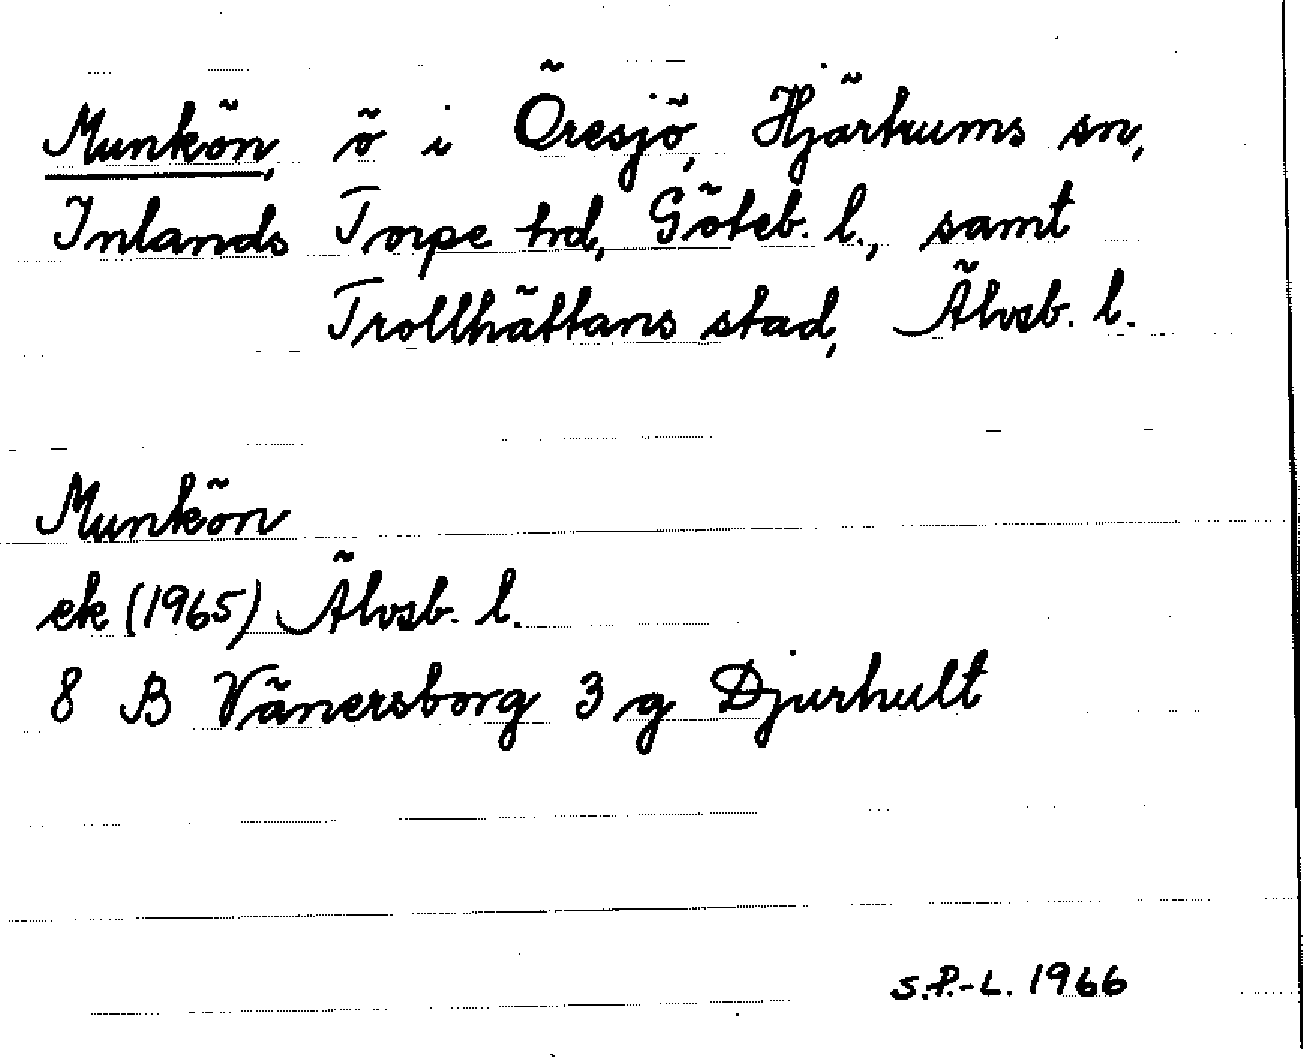 Munkön, ö i Öresjö, Hjärtums sn,
Inlands Torpe hd, Göteb. l., samt
Trollhättans stad, Älvsb. l.
Munkön
ek (1965) Älvsb. l.
8 B Vänersborg 3 g Djurhult
S.P.-L. 1966